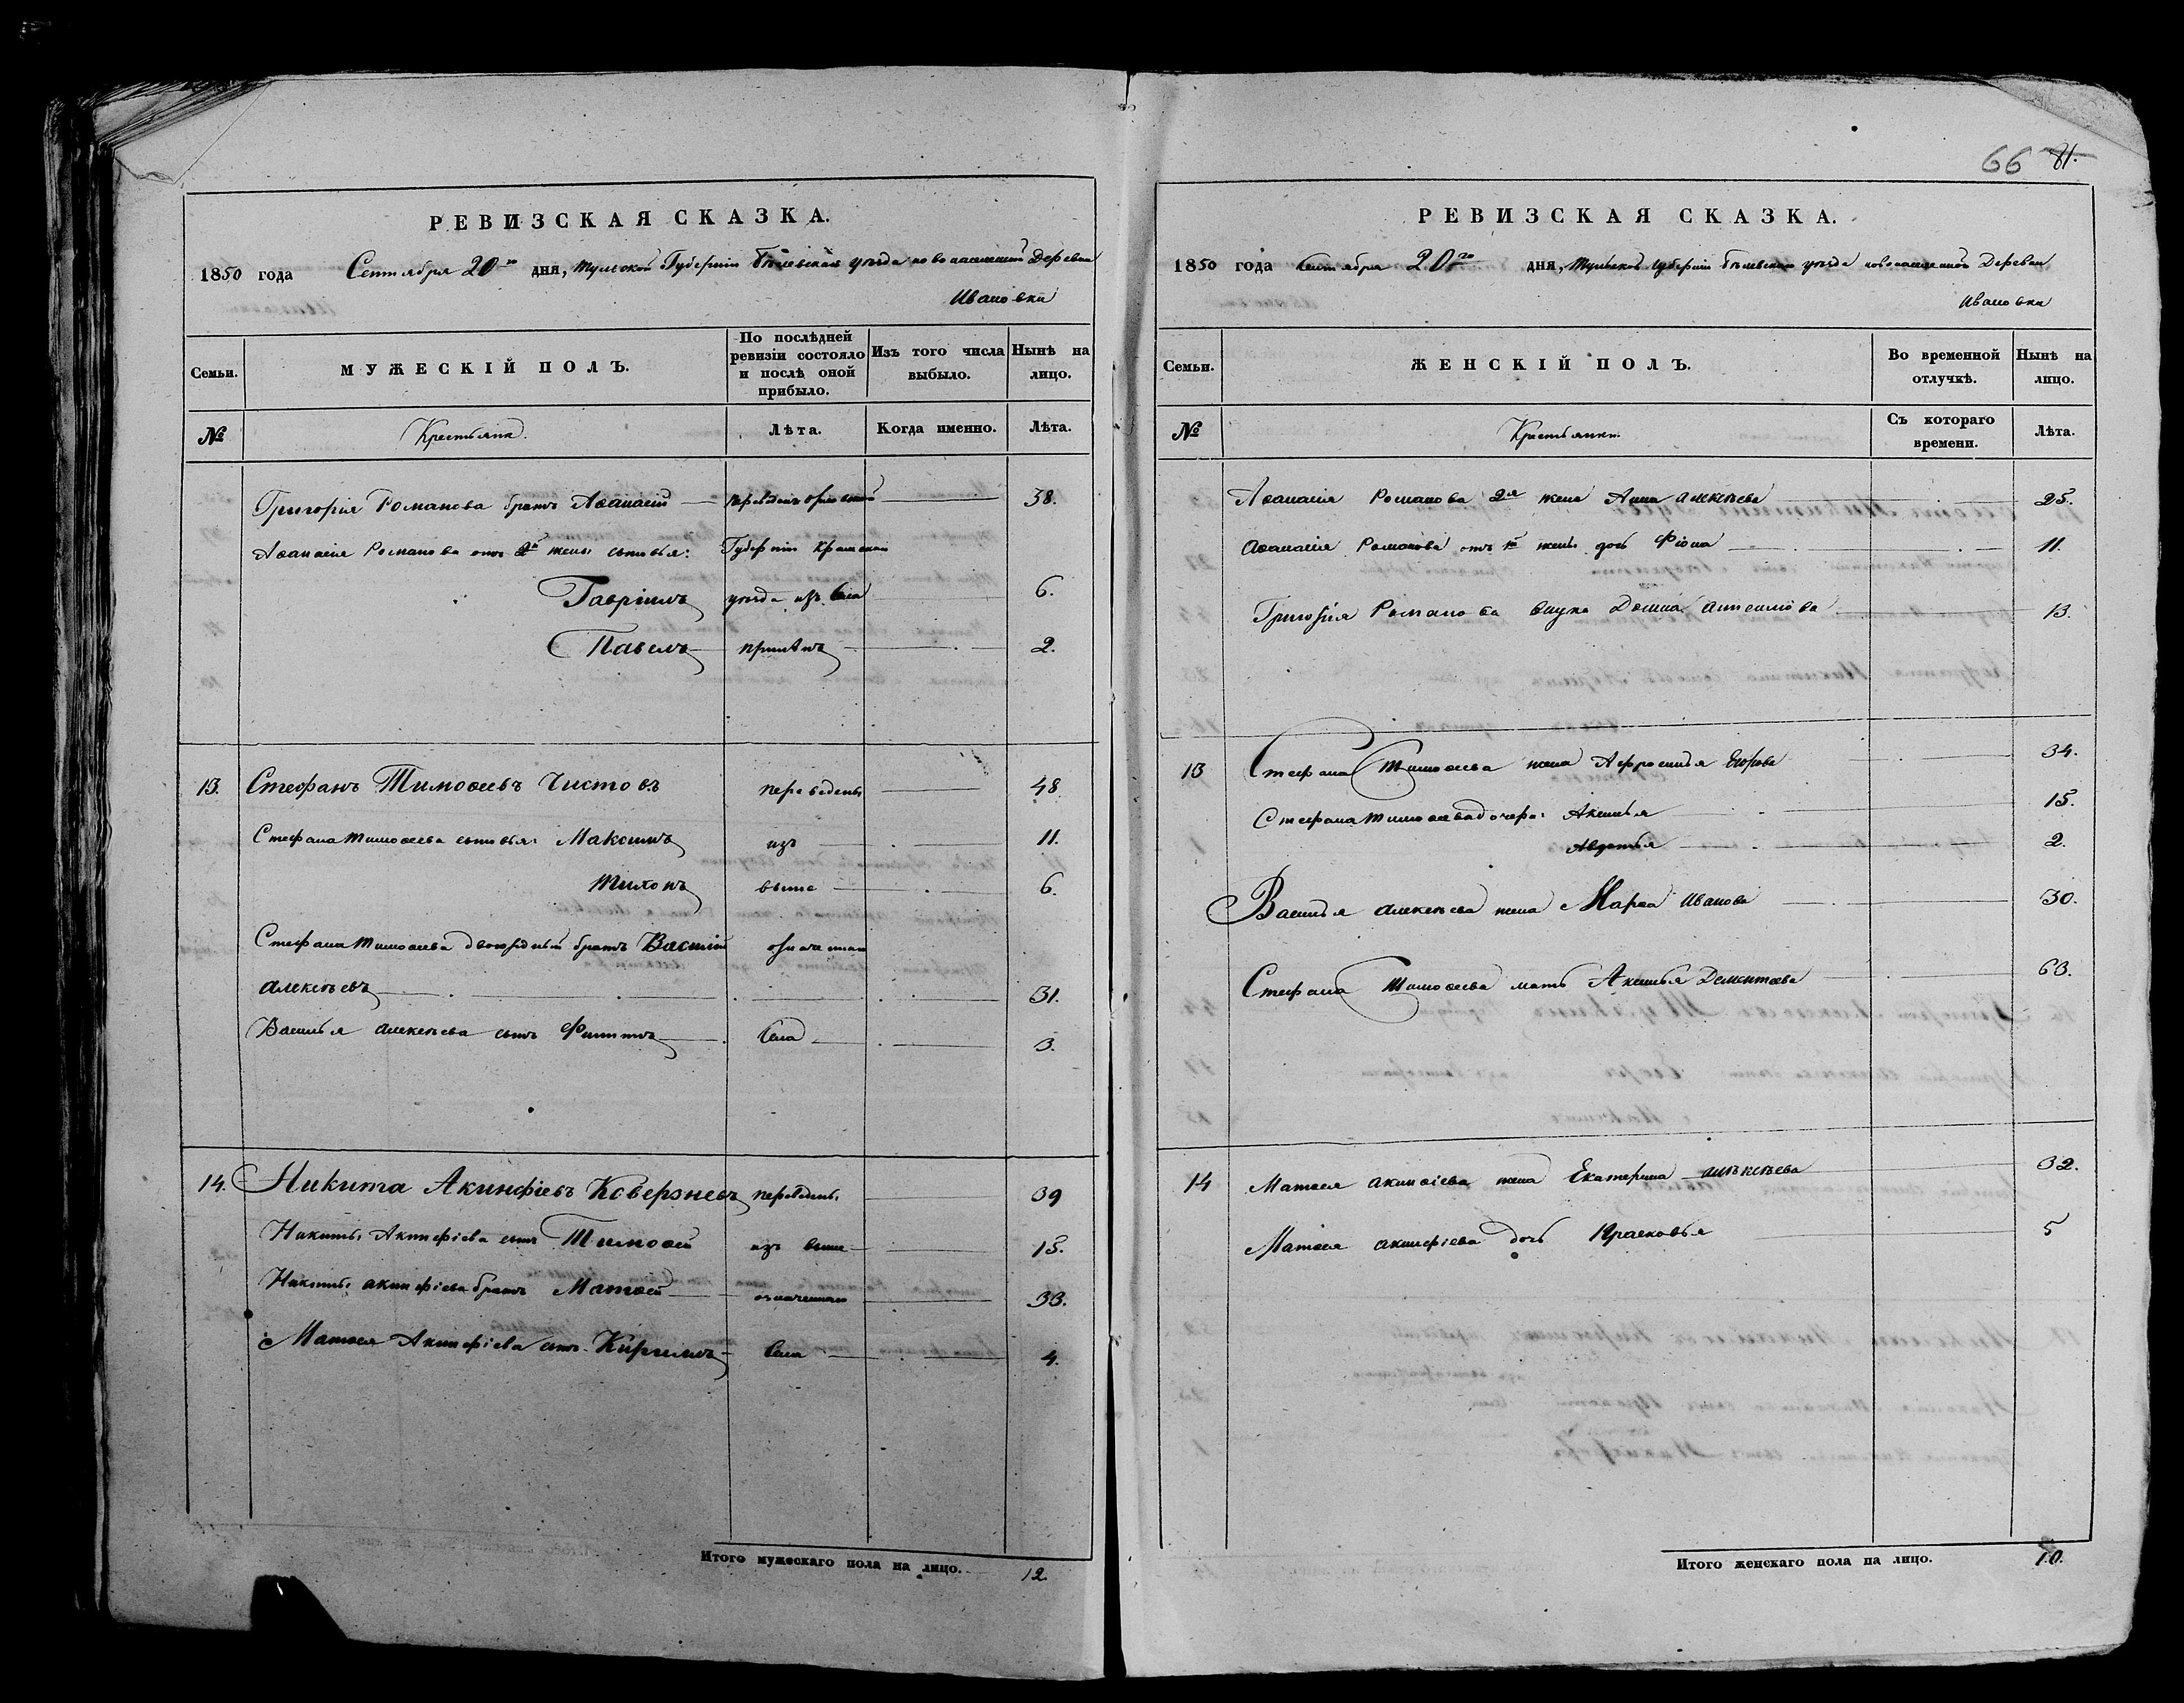 66 81.
РЕВИЗСКАЯ СКАЗКА.
1850 года Сентября 20го дня, Тульской Губернiи Бѣлевскаго уѣзда новонаселенной Деревни
Ивановки
Семьи.
МУЖЕСКІЙ ПОЛЪ.
По послѣдней ревизіи состояло и послѣ оной прибыло.
Изъ того числа выбыло.
Нынѣ на лицо.
№
Крестьяне.
Лѣта.
Когда именно.
Лѣта.
Григорія Романова братъ Аѳанасій переведены Орловской 38.
Аѳанасія Романова отъ 2й жены сыновья: Губерніи
Гавріилъ уѣзда изъ Села 6.
Павелъ 2.
13. Стефанъ Тимоѳеевъ Чистовъ переведены 48
Стефана Тимоѳеева сыновья: Максимъ изъ 11.
Тихонъ выше 6.
Стефана Тимоѳеева двоюродный братъ Василій
Алексѣевъ 31.
Василья Алексѣева сынъ Филиппъ Села 3.
14. Никита Акинфіевъ Коверзневъ переведены 39
Никиты Акинфіева сынъ Тимоѳей изъ выше 15.
Никиты Акинфіева братъ Матѳей означеннаго 33.
Матѳея Акинфіева сынъ Кирилъ Села 4.
Итого мужескаго пола на лицо. 12.
РЕВИЗСКАЯ СКАЗКА.
1850 года Сентября 20го дня, Тульской Губерніи Бѣлевскаго уѣзда новонаселенной Деревни
Ивановки
Семьи.
ЖЕНСКІЙ ПОЛЪ.
Во временной отлучкѣ.
Нынѣ на лицо.
№
Крестьянки.
Съ котораго времени.
Лѣта.
Аѳанасія Романова 2я жена Анна Алексѣева 25.
Аѳанасія Романова отъ 1й жены дочь Фіона 11.
Григорія Романова внука Домна 13.
13 Стефана Тимоѳеева жена Афросинья Егорова 34.
Стефана Тимоѳеева дочери: Аксинья 15.
Авдотья 2.
Василья Алексѣева жена Марѳа Иванова 30.
Стефана Тимоѳеева мать Аксинья Дементьева 63.
14 Матѳея Акинфіева жена Екатерина Алексѣева 32.
Матѳея Акинфіева дочь Прасковья 5
Итого женскаго пола на лицо. 10.